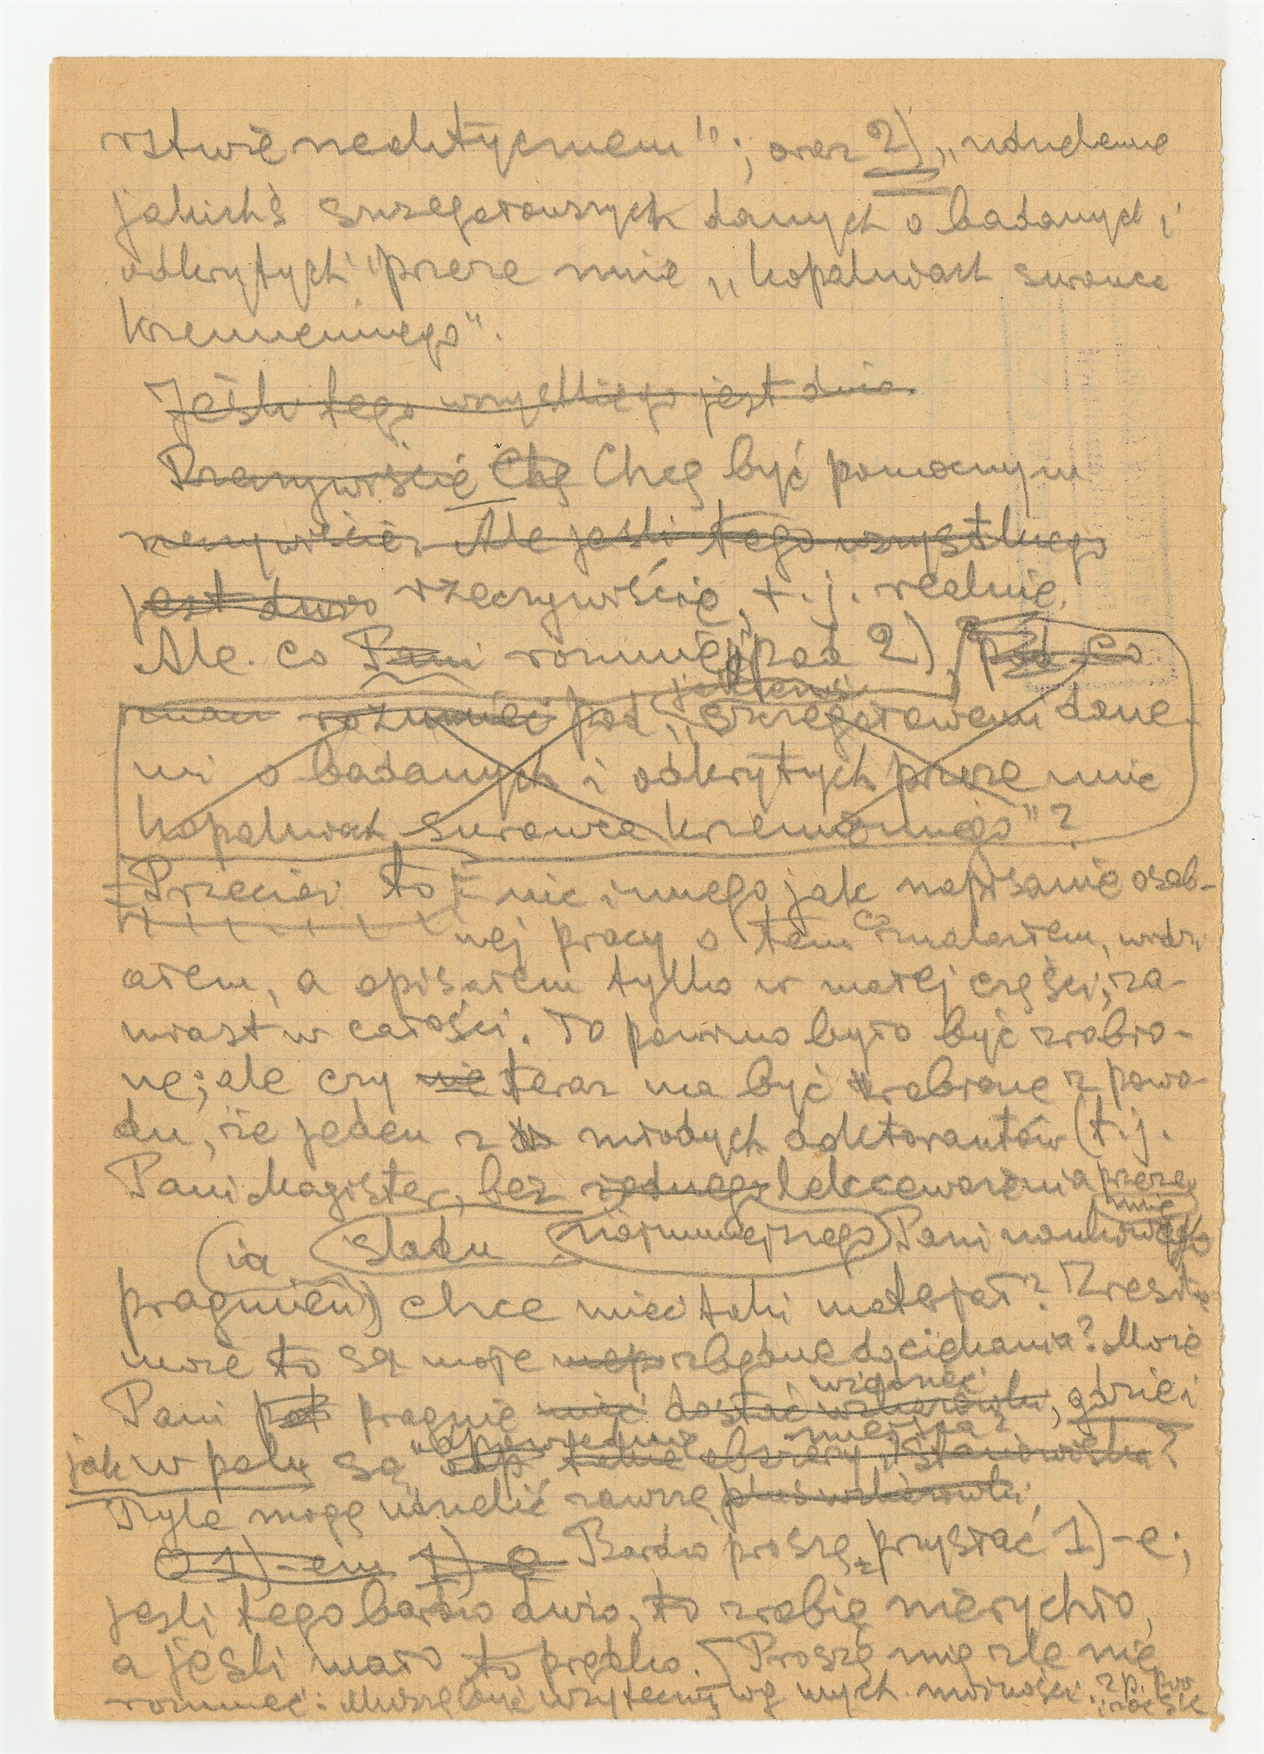 rstwie neolitycznem"; oraz 2) „udzielenie
jakichś szczegółowszych danych o badanych i
odkrytych przeze mnie „kopalniach surowca
krzemiennego".
Jeśli tego wszystkiego jest dużo.
Rzeczywiście Chę Chcę być pomocnym
rzeczywiście. Ale jeśli tego wszystkiego
jest dużo rzeczywiście, t.j. realnie.
Ale co Pani rozumie pod 2), pod co
rozumieć pod „szczegółowemi dane-
mi o badanych i odkrytych przeze mnie
kopalniach surowca krzemiennego"?
Przecież to nic innego jak napisanie osob-
nej pracy o tem co znalazłem, widzi
ałem, a opisałem tylko w małej części, za-
miast w całości. To powinno było być zrobio-
ne; ale czy nie teraz ma być zrobione z powo-
du, że jeden z młodych doktorantów (t.j.
Pani Magister, bez żadnego lekceważenia przeze mnie
śladu najmniejszego Pani naukowego
pragnienia) chce mieć taki materjał? Zresztą
może to są moje zbędne dociekania? Może
Pani pragnie mieć dostać wskazówki, wiedzieć, gdzie i
jak w polu są odpowiednie takie obszary, stanowiska? miejsca?
Tyle mogę udzielić zawsze plus wskazówki.
O 1)-em 1)-o Bardzo proszę przysłać 1)-e;
jeśli tego bardzo dużo, to zrobię nierychło,
a jeśli mało to prędko. Proszę mię źle nie
rozumieć: Muszę być użyteczny wg mych możności